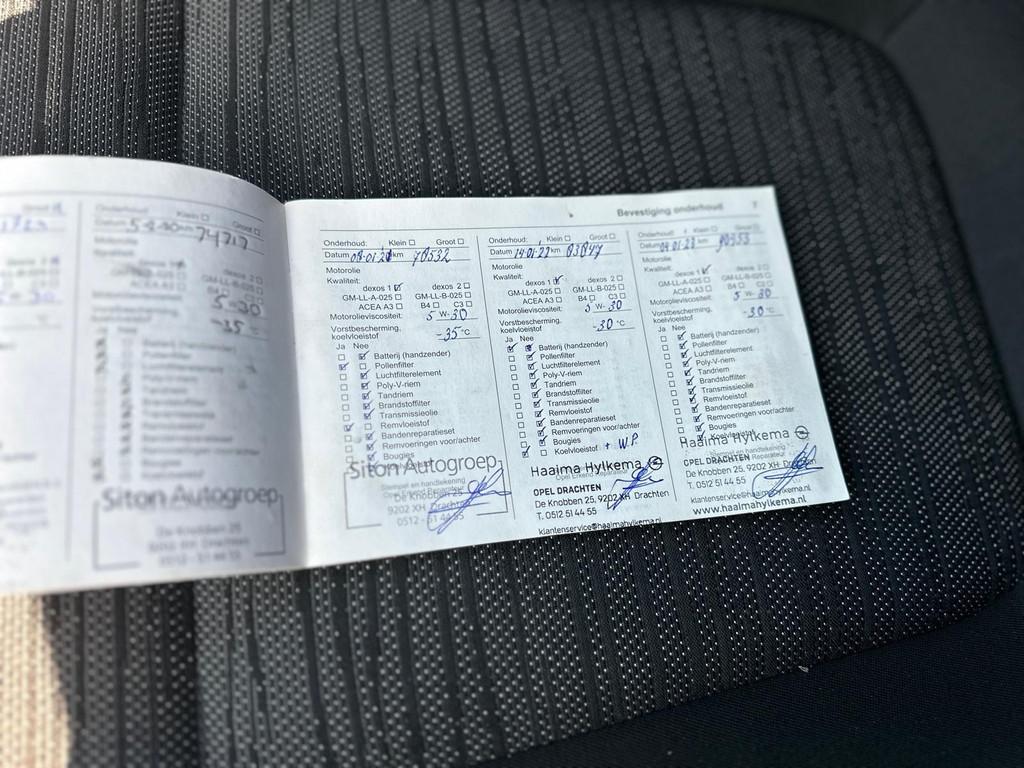 Groot
Onderhoud: Klein ☐ Groot ☐
Datum 5-2-20 km 74717
dexos 2 ☐
ACEA A3 ☐
5-30
-35 °C
Siton Autogroep
De Knobben 25
9202 XH Drachten
0512 - 51 44 55
Bevestiging onderhoud 7
Onderhoud: Klein ☐ Groot ☐
Datum 08-01-21 km 78532
Motorolie
Kwaliteit:
dexos 1 ☑ dexos 2 ☐
GM-LL-A-025 ☐ GM-LL-B-025 ☐
ACEA A3 ☐ B4 ☐ C3 ☐
Motorolieviscositeit: 5 W-30
Vorstbescherming,
koelvloeistof -35 °C
Ja Nee
☐ ☑ Batterij (handzender)
☑ ☐ Pollenfilter
☐ ☑ Luchtfilterelement
☐ ☑ Poly-V-riem
☐ ☑ Tandriem
☐ ☑ Brandstoffilter
☐ ☑ Transmissieolie
☑ ☐ Remvloeistof
☐ ☑ Bandenreparatieset
☐ ☑ Remvoeringen voor/achter
☐ ☑ Bougies
Siton Autogroep
Stempel en handtekening
Opel Erkend Reparateur
De Knobben 25
9202 XH Drachten
0512 - 51 44 55
Onderhoud: Klein ☐ Groot ☐
Datum 14-01-22 km 83847
Motorolie
Kwaliteit:
dexos 1 ☑ dexos 2 ☐
GM-LL-A-025 ☐ GM-LL-B-025 ☐
ACEA A3 ☐ B4 ☐ C3 ☐
Motorolieviscositeit: 5 W-30
Vorstbescherming,
koelvloeistof -30 °C
Ja Nee
☑ ☑ Batterij (handzender)
☐ ☑ Pollenfilter
☐ ☑ Luchtfilterelement
☐ ☑ Poly-V-riem
☐ ☑ Tandriem
☐ ☑ Brandstoffilter
☐ ☑ Transmissieolie
☐ ☑ Remvloeistof
☐ ☑ Bandenreparatieset
☐ ☑ Remvoeringen voor/achter
☐ ☑ Bougies
☑ ☐ Koelvloeistof + W.P.
Haaima Hylkema
Opel Erkend Reparateur
OPEL DRACHTEN
De Knobben 25, 9202 XH Drachten
T. 0512 51 44 55
klantenservice@haaimahylkema.nl
Onderhoud: Klein ☐ Groot ☐
Datum 04-01-23 km 90353
Motorolie
Kwaliteit:
dexos 1 ☑ dexos 2 ☐
GM-LL-A-025 ☐ GM-LL-B-025 ☐
ACEA A3 ☐ B4 ☐ C3 ☐
Motorolieviscositeit: 5 W-30
Vorstbescherming,
koelvloeistof -30 °C
Ja Nee
☐ ☑ Batterij (handzender)
☐ ☑ Pollenfilter
☐ ☑ Luchtfilterelement
☐ ☑ Poly-V-riem
☐ ☑ Tandriem
☐ ☑ Brandstoffilter
☐ ☑ Transmissieolie
☐ ☑ Remvloeistof
☐ ☑ Bandenreparatieset
☐ ☑ Remvoeringen voor/achter
☐ ☑ Bougies
☐ ☑ Koelvloeistof
Haaima Hylkema
Stempel en handtekening
OPEL DRACHTEN
De Knobben 25, 9202 XH Drachten
T. 0512 51 44 55
klantenservice@haaimahylkema.nl
www.haaimahylkema.nl